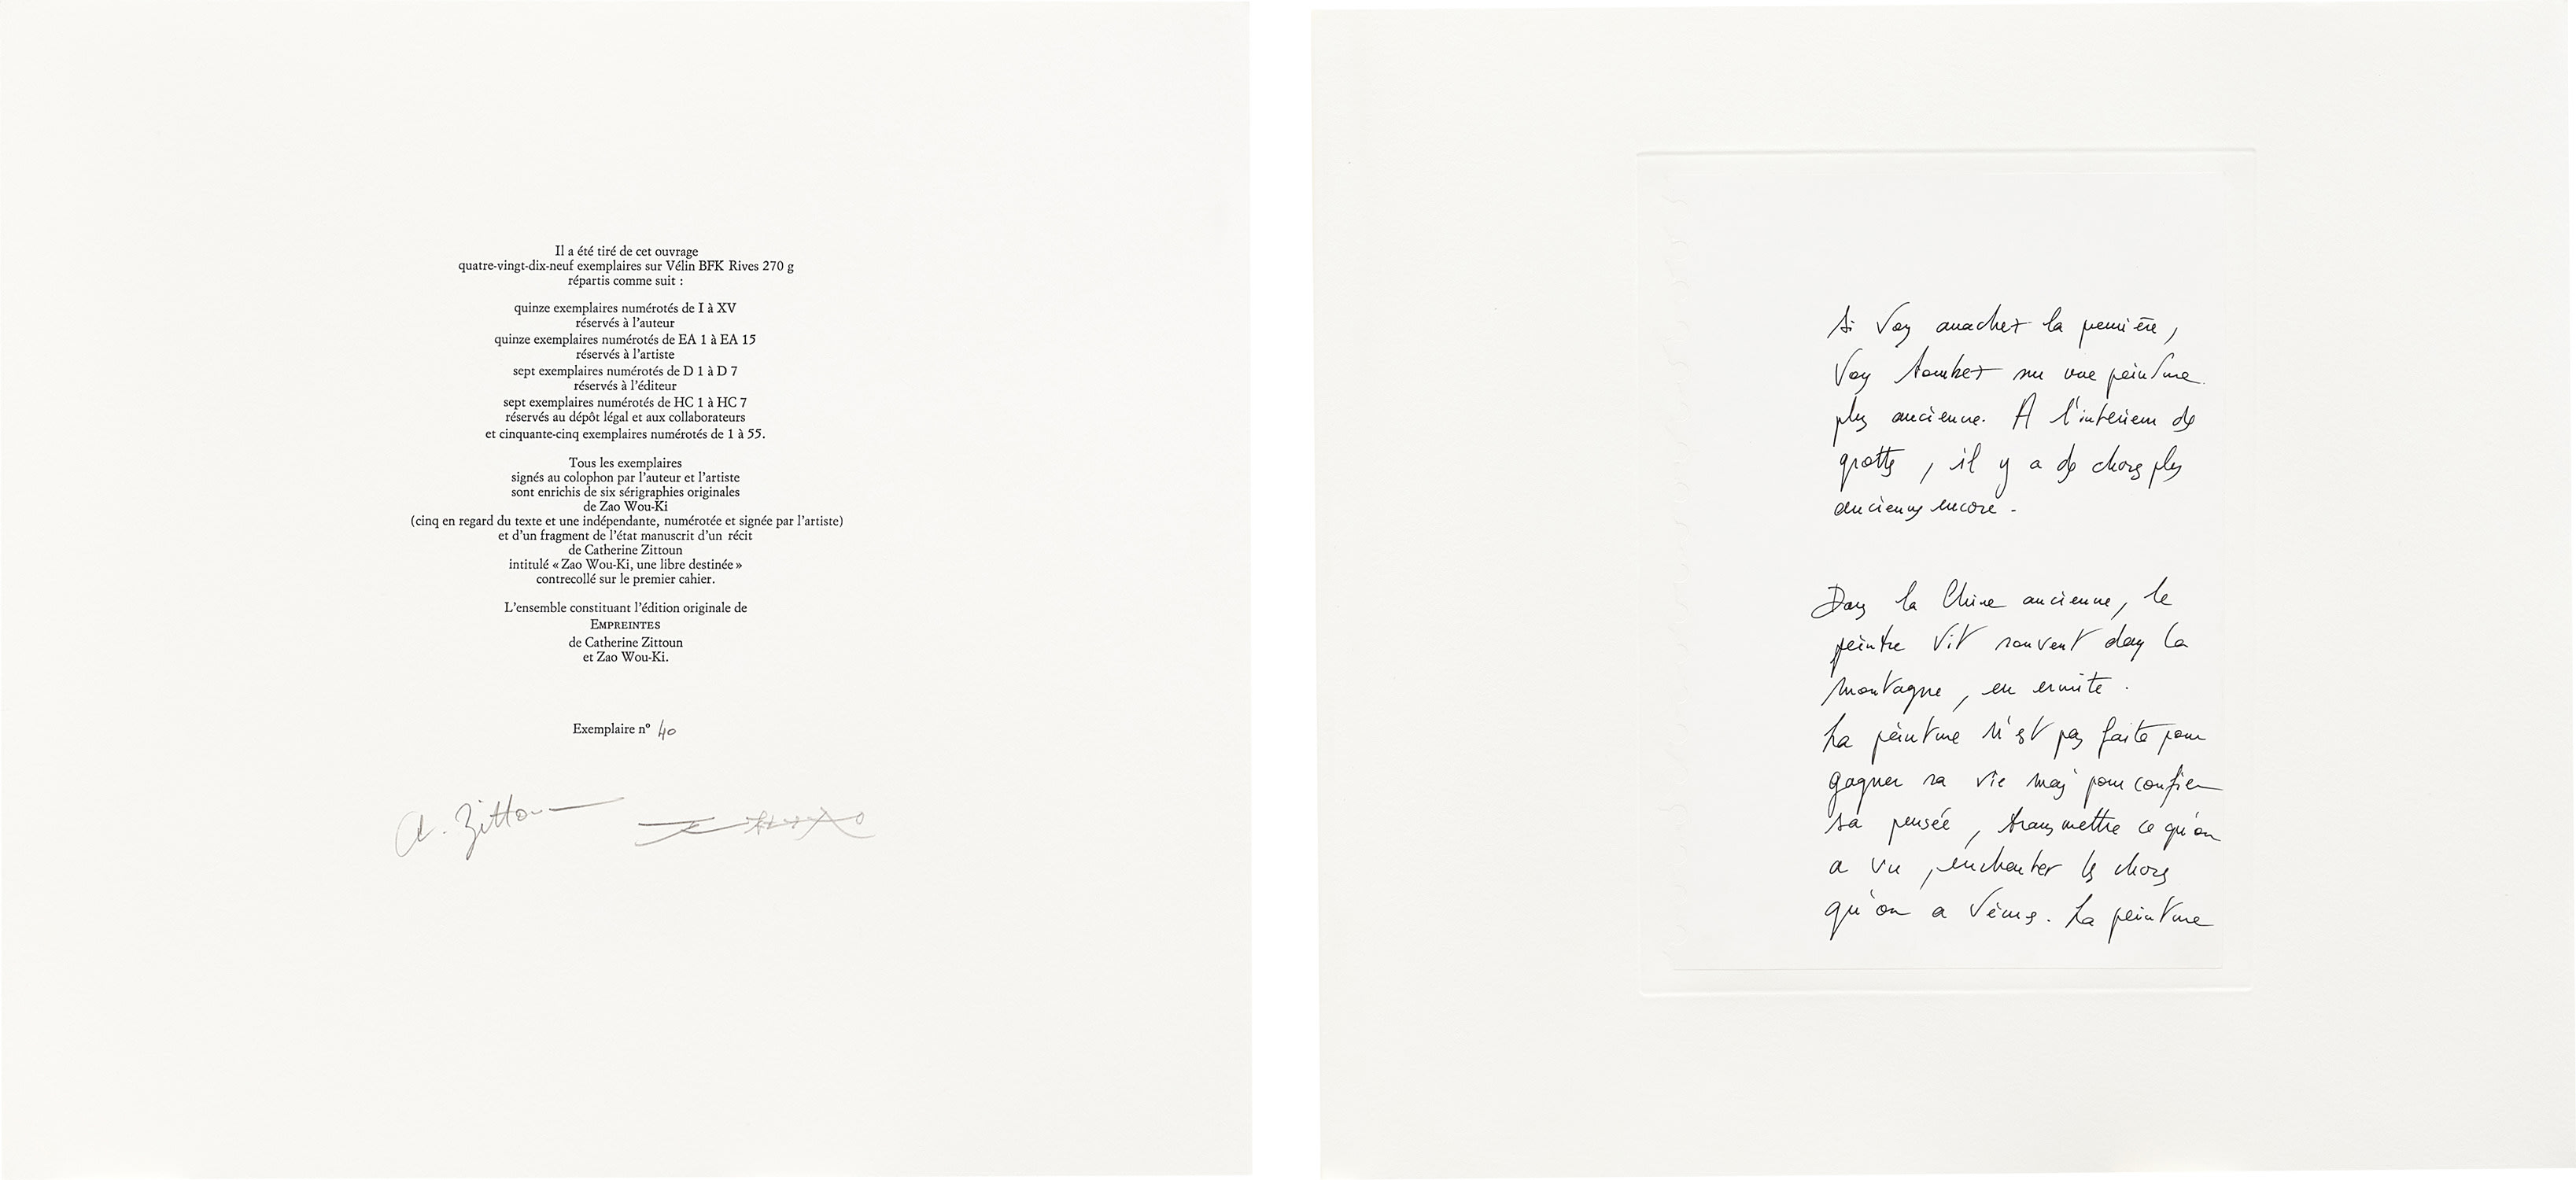 Il a été tiré de cet ouvrage
quatre-vingt-dix-neuf exemplaires sur Vélin BFK Rives 270 g
répartis comme suit :
quinze exemplaires numérotés de I à XV
réservés à l'auteur
quinze exemplaires numérotés de EA 1 à EA 15
réservés à l'artiste
sept exemplaires numérotés de D 1 à D 7
réservés à l'éditeur
sept exemplaires numérotés de HC 1 à HC 7
réservés au dépôt légal et aux collaborateurs
et cinquante-cinq exemplaires numérotés de 1 à 55.
Tous les exemplaires
signés au colophon par l'auteur et l'artiste
sont enrichis de six sérigraphies originales
de Zao Wou-Ki
(cinq en regard du texte et une indépendante, numérotée et signée par l'artiste)
et d'un fragment de l'état manuscrit d'un récit
de Catherine Zittoun
intitulé « Zao Wou-Ki, une libre destinée »
contrecollé sur le premier cahier.
L'ensemble constituant l'édition originale de
EMPREINTES
de Catherine Zittoun
et Zao Wou-Ki.
Exemplaire nº 40
C. Zittoun
Si vous arrachez la première,
vous tombez sur une peinture
plus ancienne. A l'intérieur des
grottes, il y a des choses plus
anciennes encore.
Dans la Chine ancienne, le
peintre vit souvent dans la
montagne, en ermite.
La peinture n'est pas faite pour
gagner sa vie mais pour confier
sa pensée, transmettre ce qu'on
a vu, enchanter les choses
qu'on a vécues. La peinture